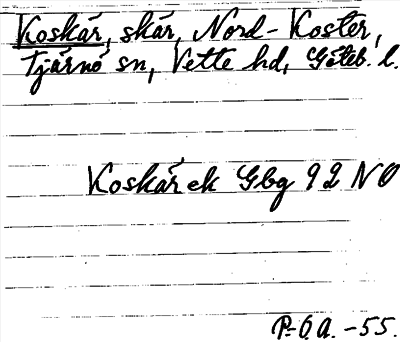 Koskär, skär, Nord-Koster,
Tjärnö sn, Vette hd, Göteb. l.
Koskär ek Gbg 92 NO
P-Ö.A. -55.